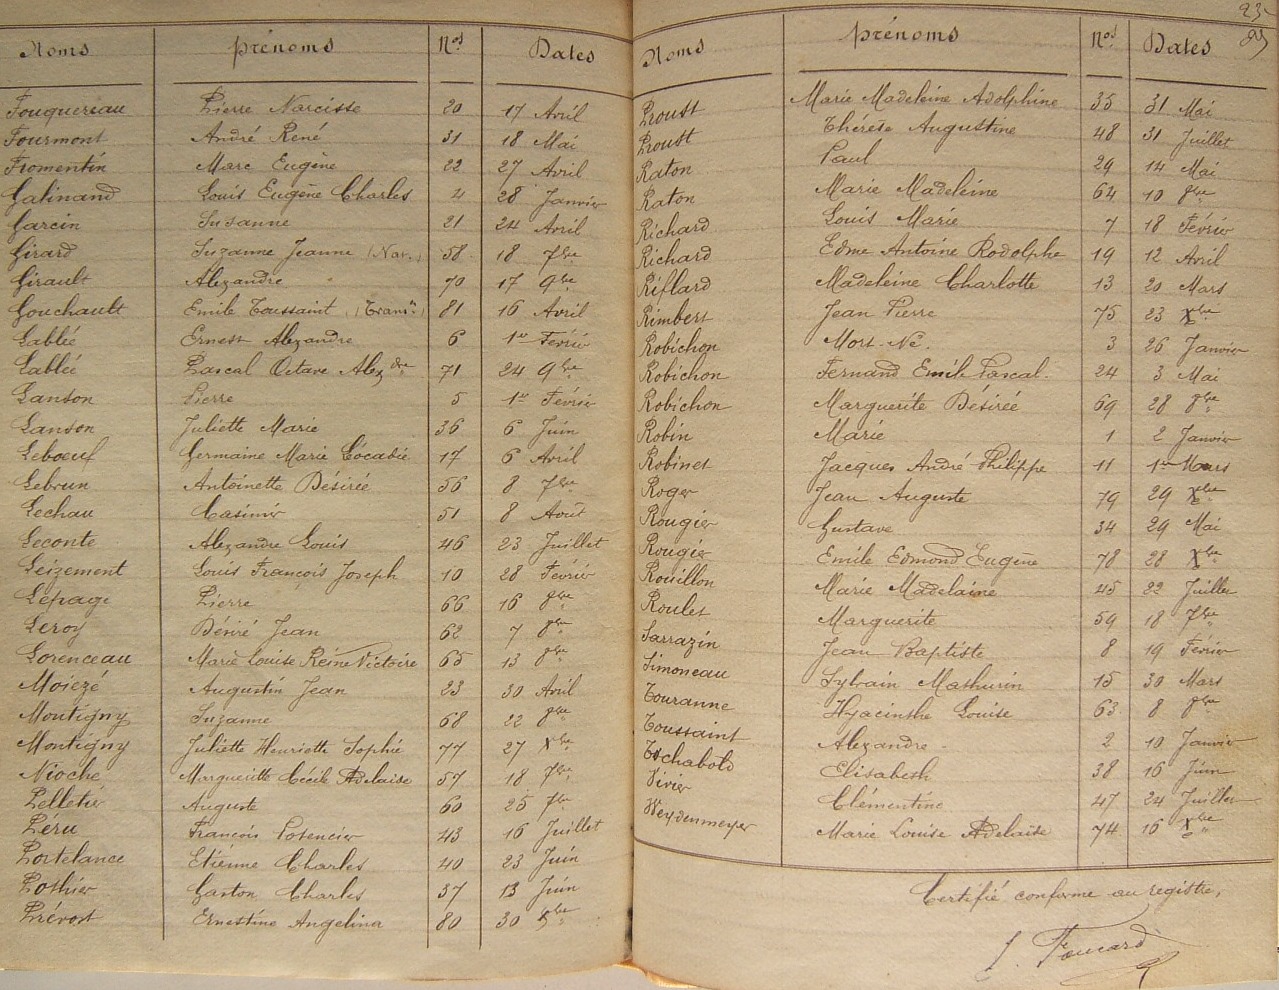 Noms Prénoms Nos Dates
Fouqueriau Pierre Narcisse 20 17 Avril
Fourmont André René 31 18 Mai
Fromentin Marc Eugène 22 27 Avril
Galinand Louis Eugène Charles 4 28 Janvier
Garcin Suzanne 21 24 Avril
Girard Suzanne Jeanne 58 18 7bre
Girault Alexandre 70 17 9bre
Gouchault Emile Toussaint (Transon) 81 16 Avril
Lablée Ernest Alexandre 6 1er Février
Lablée Pascal Octave Alexdre 71 24 9bre
Lanson Pierre 5 1er Février
Lanson Juliette Marie 36 6 Juin
Leboeuf Germaine Marie Léocadie 17 6 Avril
Lebrun Antoinette Désirée 56 8 7bre
Lechau Casimir 51 8 Août
Leconte Alexandre Louis 46 23 Juillet
Leizement Louis François Joseph 10 28 Février
Lepage Pierre 66 16 8bre
Leroy Désiré Jean 62 7 8bre
Lorenceau Marie Louise Reine Victoire 65 13 8bre
Moiezé Augustin Jean 23 30 Avril
Montigny Suzanne 68 22 8bre
Montigny Juliette Henriette Sophie 77 27 Xbre
Nioche Marguerite Cécile Adelaïse 57 18 7bre
Pelletier Auguste 60 25 7bre
Péru François Potencier 43 16 Juillet
Portelance Etienne Charles 40 23 Juin
Pothier Gaston Charles 37 13 Juin
Prévost Ernestine Angelina 80 30 Xbre
23
Noms Prénoms Nos Dates
Proust Marie Madeleine Adolphine 35 31 Mai
Proust Thérèse Augustine 48 31 Juillet
Raton Paul 29 14 Mai
Raton Marie Madeleine 64 10 8bre
Richard Louis Marie 7 18 Février
Richard Edme Antoine Rodolphe 19 12 Avril
Riflard Madeleine Charlotte 13 20 Mars
Rimbert Jean Pierre 75 23 Xbre
Robichon Mort-Né. 3 26 Janvier
Robichon Fernand Emile Pascal. 24 3 Mai
Robichon Marguerite Désirée 69 28 8bre
Robin Marie 1 2 Janvier
Robinet Jacques André Philippe 11 1er Mars
Roger Jean Auguste 79 29 Xbre
Rougier Gustave 34 29 Mai
Rougier Emile Edmond Eugène 78 28 Xbre
Rouillon Marie Madelaine 45 22 Juillet
Roulet Marguerite 59 18 7bre
Sarrazin Jean Baptiste 8 19 Février
Simoneau Sylvain Mathurin 15 30 Mars
Touranne Hyacinthe Louise 63 8 8bre
Toussaint Alexandre 2 10 Janvier
Tschabold Elisabeth 38 16 Juin
Vivier Clémentine 47 24 Juillet
Weydenmeyer Marie Louise Adelaïse 74 16 Xbre
Certifié conforme au registre,